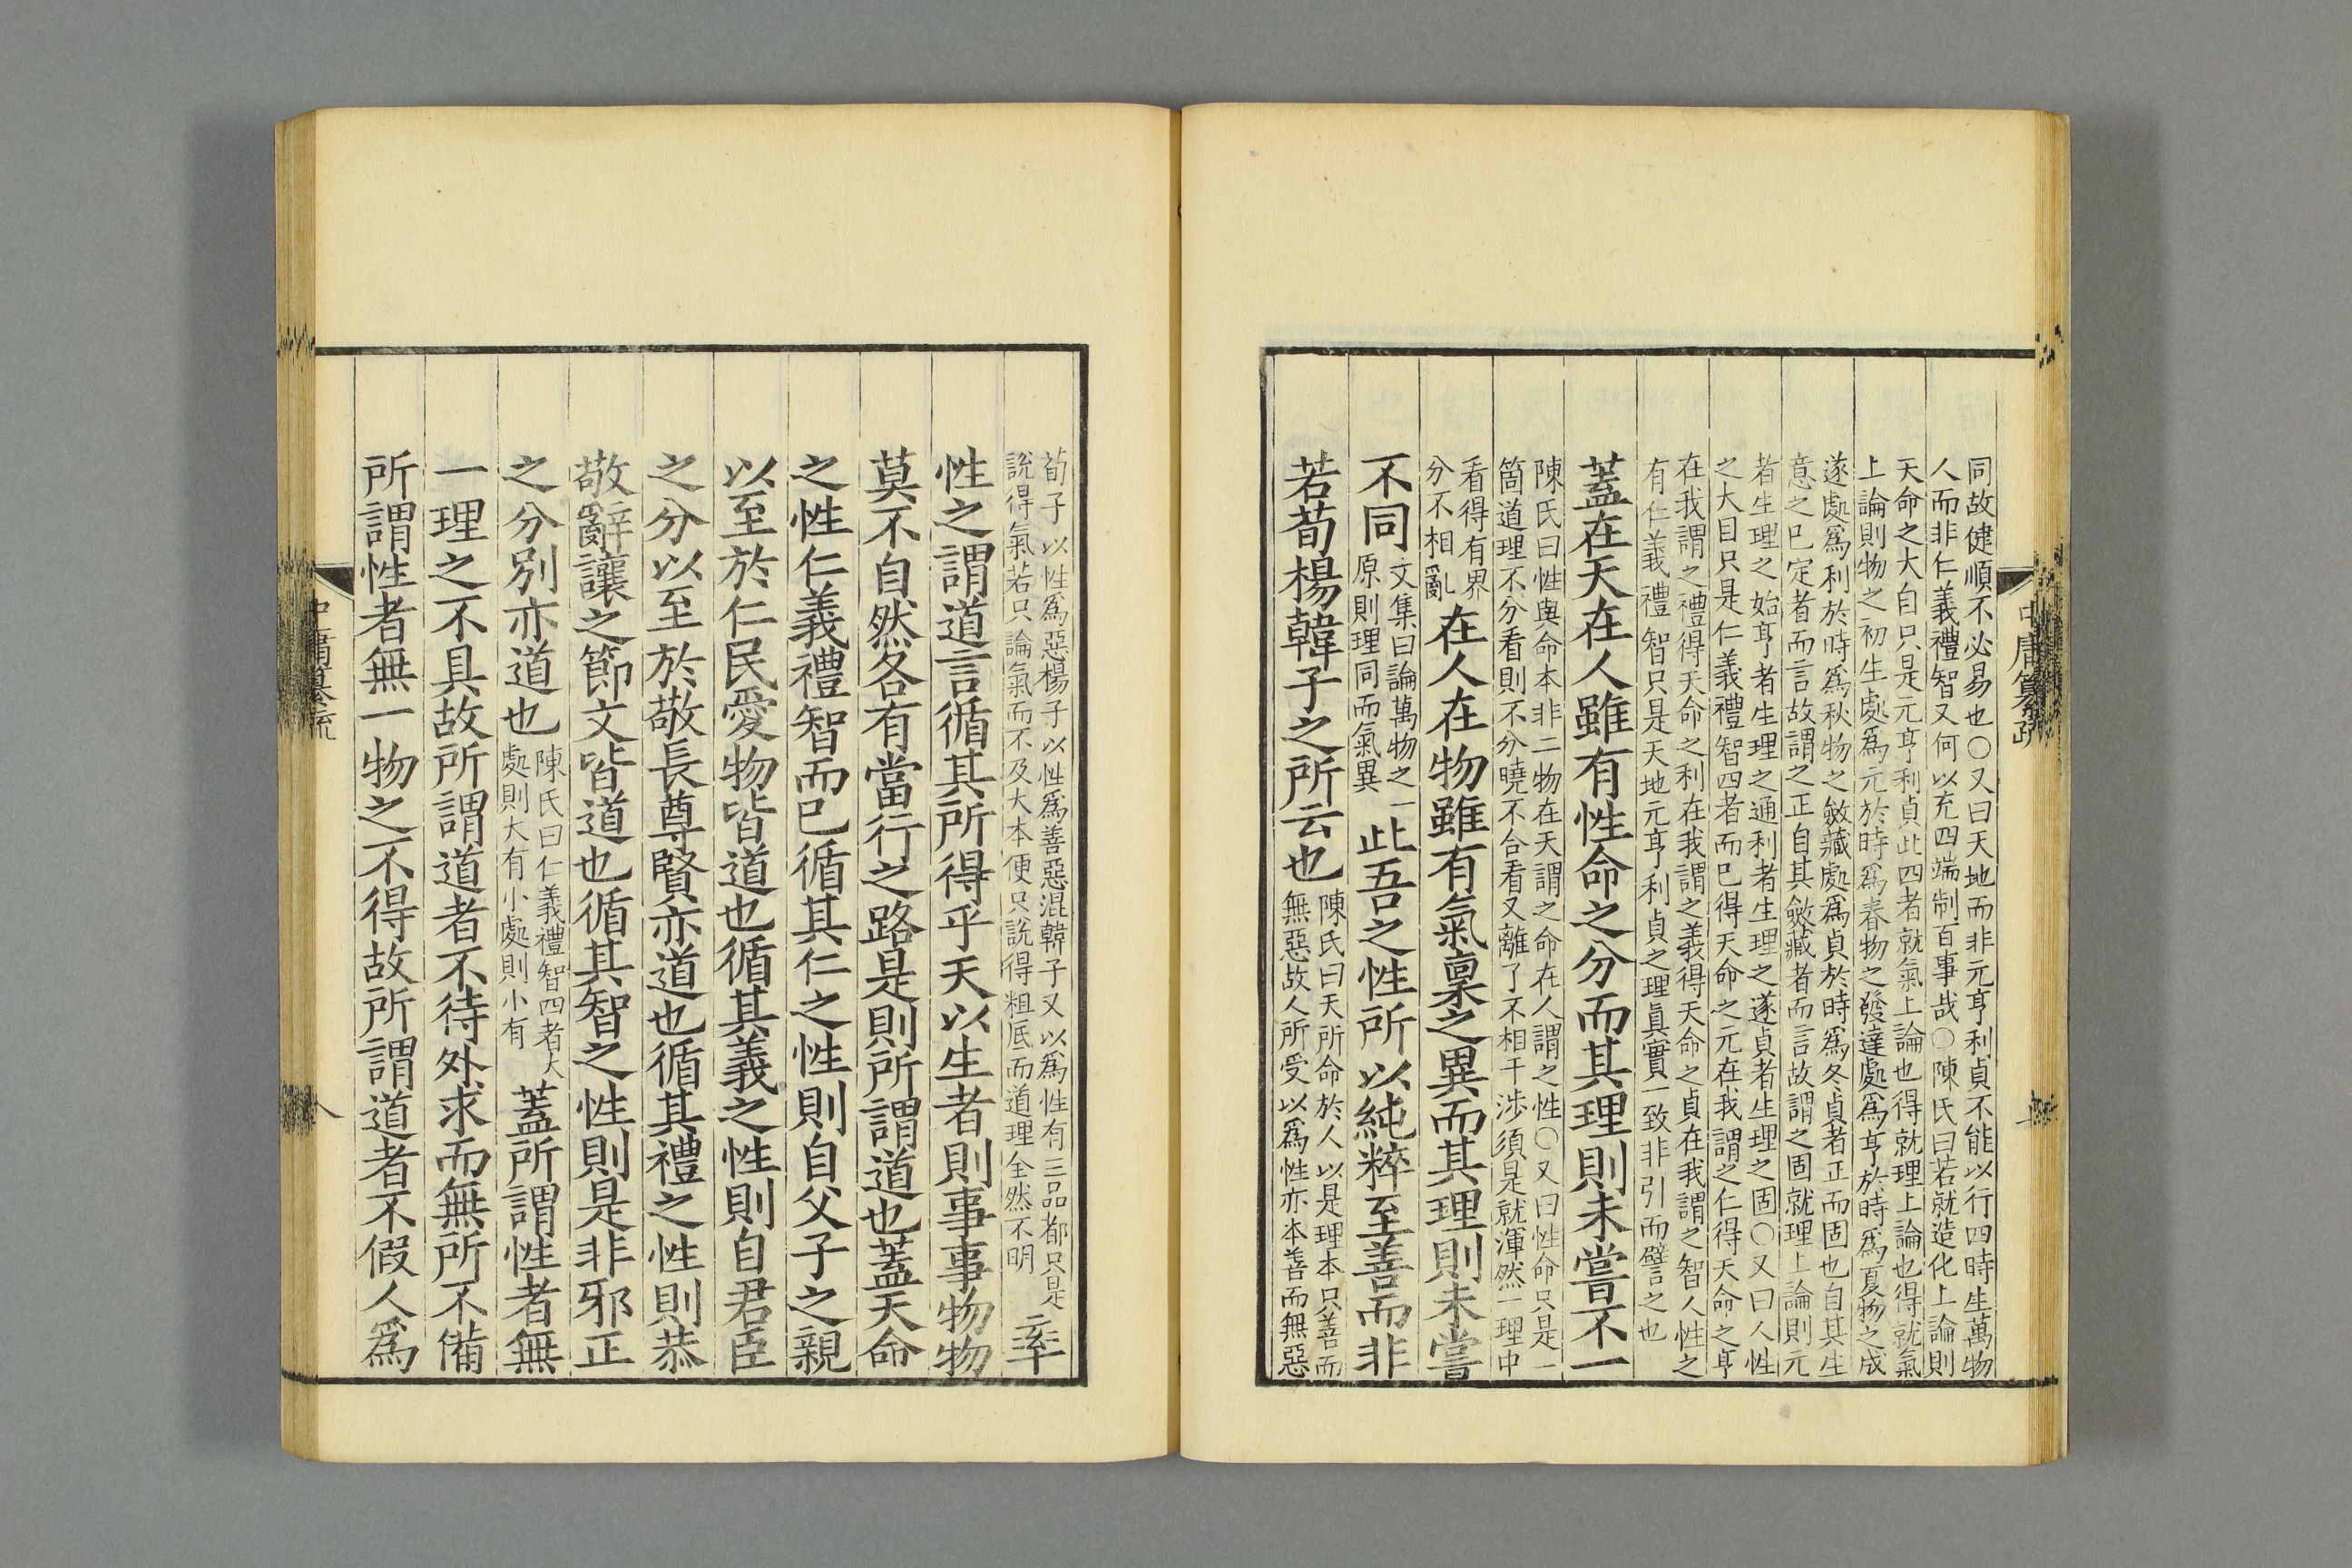 同故健順不必易也○又曰天地而非元亨利貞不能以行四時生萬物
人而非仁義禮智又何以充四端制百事哉○陳氏曰若就造化上論則
天命之大目只是元亨利貞此四者就氣上論也得就理上論也得就氣
上論則物之初生處爲元於時爲春物之發達處爲亨於時爲夏物之成
遂處爲利於時爲秋物之斂藏處爲貞於時爲冬貞者正而固也自其生
意之已定者而言故謂之正自其斂藏者而言故謂之固就理上論則元
者生理之始亨者生理之通利者生理之遂貞者生理之固○又曰人性
之大目只是仁義禮智四者而已得天命之元在我謂之仁得天命之亨
在我謂之禮得天命之利在我謂之義得天命之貞在我謂之智人性之
有仁義禮智只是天地元亨利貞之理眞實一致非引而譬之也
蓋在天在人雖有性命之分而其理則未嘗不一
陳氏曰性與命本非二物在天謂之命在人謂之性○又曰性命只是一
箇道理不分看則不分曉不合看又離了不相干涉須是就渾然一理中
看得有界
分不相亂
在人在物雖有氣稟之異而其理則未嘗
不同
文集曰論萬物之一
原則理同而氣異
此吾之性所以純粹至善而非
若荀楊韓子之所云也
陳氏曰天所命於人以是理本只善而
無惡故人所受以爲性亦本善而無惡
中庸纂疏
荀子以性爲惡楊子以性爲善惡混韓子又以爲性有三品都只是
說得氣若只論氣而不及大本便只說得粗底而道理全然不明
率
性之謂道言循其所得乎天以生者則事事物物
莫不自然各有當行之路是則所謂道也蓋天命
之性仁義禮智而已循其仁之性則自父子之親
以至於仁民愛物皆道也循其義之性則自君臣
之分以至於敬長尊賢亦道也循其禮之性則恭
敬辭讓之節文皆道也循其智之性則是非邪正
之分別亦道也
陳氏曰仁義禮智四者大
處則大有小處則小有
蓋所謂性者無
一理之不具故所謂道者不待外求而無所不備
所謂性者無一物之不得故所謂道者不假人爲
中庸纂疏
八